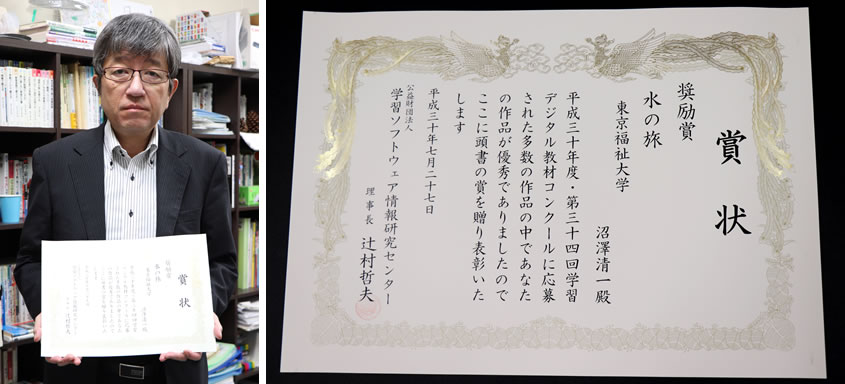 賞状
奨励賞
水の旅
東京福祉大学
沼澤清一殿
平成三十年度・第三十四回学習
デジタル教材コンクールに応募
された多数の作品の中であなた
の作品が優秀でありましたので
ここに頭書の賞を贈り表彰いた
します
平成三十年七月二十七日
公益財団法人
学習ソフトウェア情報研究センター
理事長 辻村哲夫